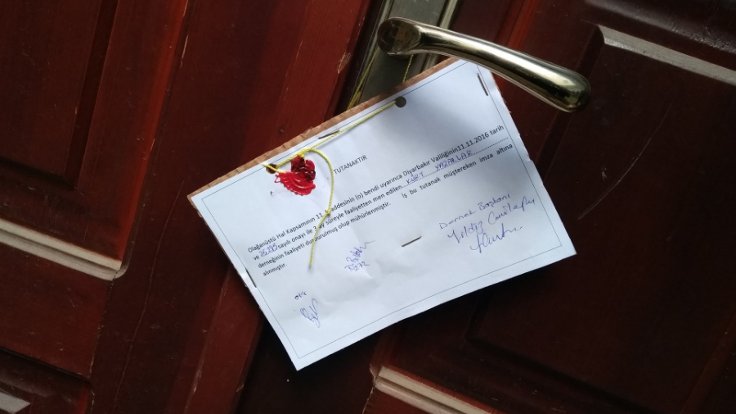 TUTANAKTIR
Olağanüstü Hal Kapsamının 11. maddesinin (o) bendi uyarınca Diyarbakır Valiliğinin 11.11.2016 tarih
ve sayılı onayı ile 3 ay süreyle faaliyetten men edilen KÜRT YAZARLAR
derneğinin faaliyeti durdurulmuş olup mühürlenmiştir. iş bu tutanak müştereken imza altına
alınmıştır.
Dernek Başkanı